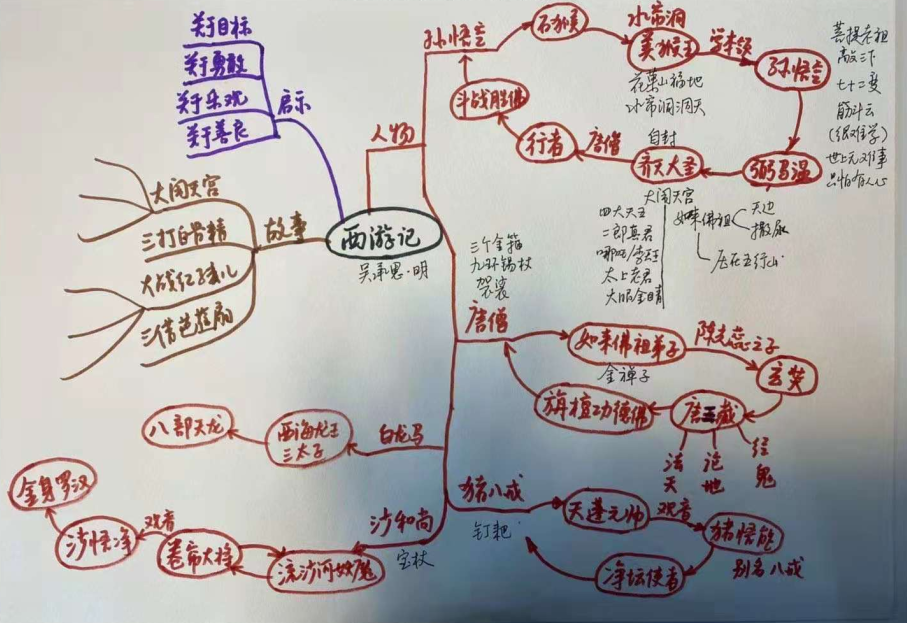 关于目标
关于勇敢
关于乐观
关于善良
启示
大闹天宫
三打白骨精
大战红孩儿
三借芭蕉扇
故事
西游记
吴承恩·明
人物
孙悟空
石猴
水帘洞
美猴王
花菓山福地
水帘洞洞天
学本领
孙悟空
菩提老祖
敲三下
七十二变
筋斗云
(很难学)
世上无难事
只怕有人心
弼马温
自封
齐天大圣
大闹天宫
四大天王
二郎真君
哪吒/李天王
太上老君
火眼金睛
如来佛祖
天边
撒尿
压在五行山
唐僧
行者
斗战胜佛
三个金箍
九环锡杖
袈裟
唐僧
如来佛祖弟子
金禅子
陈光蕊之子
玄奘
唐三藏
法 论 经
天 地 鬼
旃檀功德佛
白龙马
西海龙王
三太子
八部天龙
猪八戒
钉耙
天蓬元帅
观音
猪悟能
别名八戒
净坛使者
沙和尚
宝杖
流沙河妖魔
卷帘大将
观音
沙悟净
金身罗汉